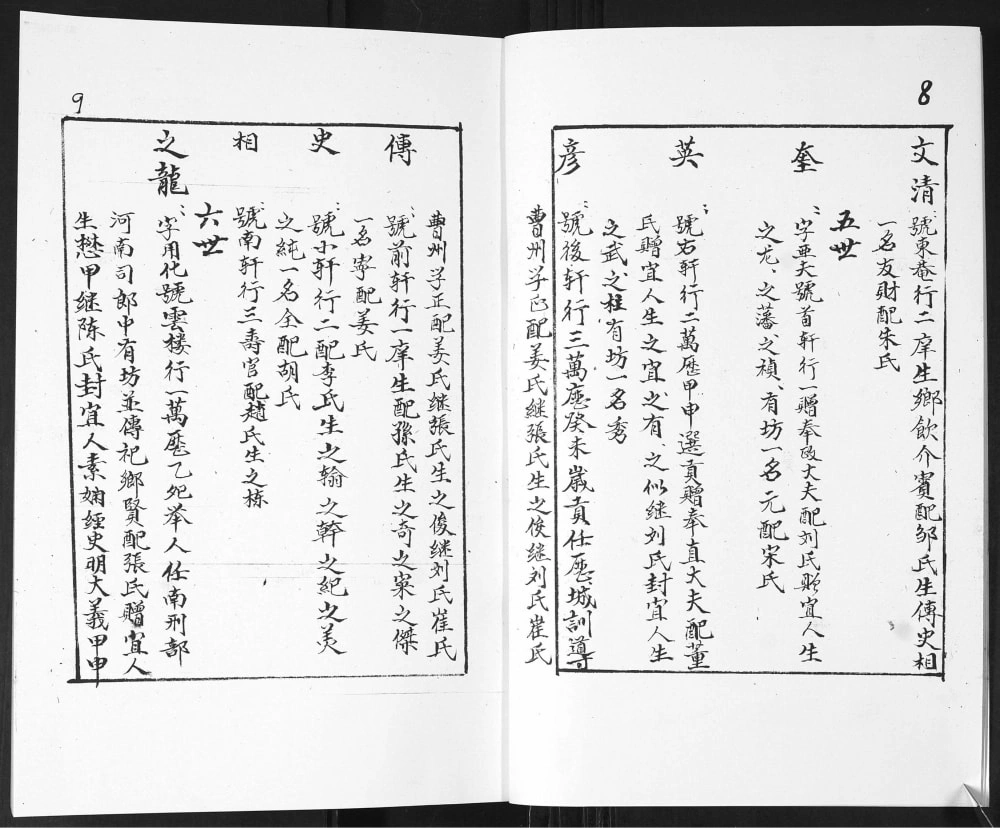 8
文清
號東菴行二庠生鄉飲介賓配邹氏生傳史相
一名友財配朱氏
五世
奎
字亜夫號首軒行一赠奉政大夫配刘氏赠宜人生
之龙之藩之禎有坊一名元配宋氏
英
號右軒行二萬歷甲申選貢赠奉直大夫配董
氏赠宜人生之宜之有之似继刘氏封宜人生
之武之柱有坊一名秀
彦
號後軒行三萬歷癸未嵗貢任歷城訓導
曹州学正配姜氏继張氏生之俊继刘氏崔氏
9
曹州学正配姜氏继張氏生之俊继刘氏崔氏
傳
號前軒行一庠生配孫氏生之奇之寀之傑
一名寧配姜氏
史
號小軒行二配李氏生之翰之幹之紀之美
之純一名全配胡氏
相
號南軒行三壽官配趙氏生之栋
六世
之龍
字用化號雲楼行一萬歷乙夘举人任南刑部
河南司郎中有坊並傳祀鄉賢配張氏赠宜人
生懋甲继陈氏封宜人素娴经史明大義甲申